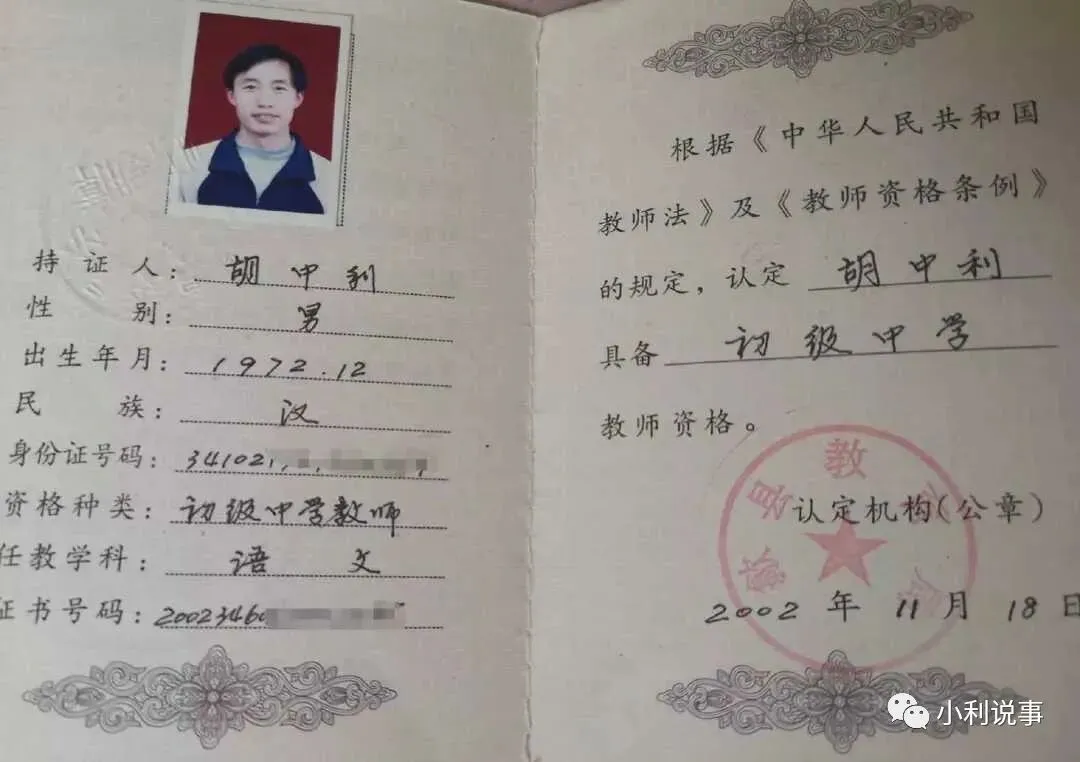 持证人：胡中利
性别：男
出生年月：1972.12
民族：汉
身份证号码：341021
资格种类：初级中学教师
任教学科：语文
证书号码：2002346
根据《中华人民共和国
教师法》及《教师资格条例》
的规定，认定 胡中利
具备 初级中学
教师资格。
认定机构（公章）
县教
2002年11月18日
小利说事